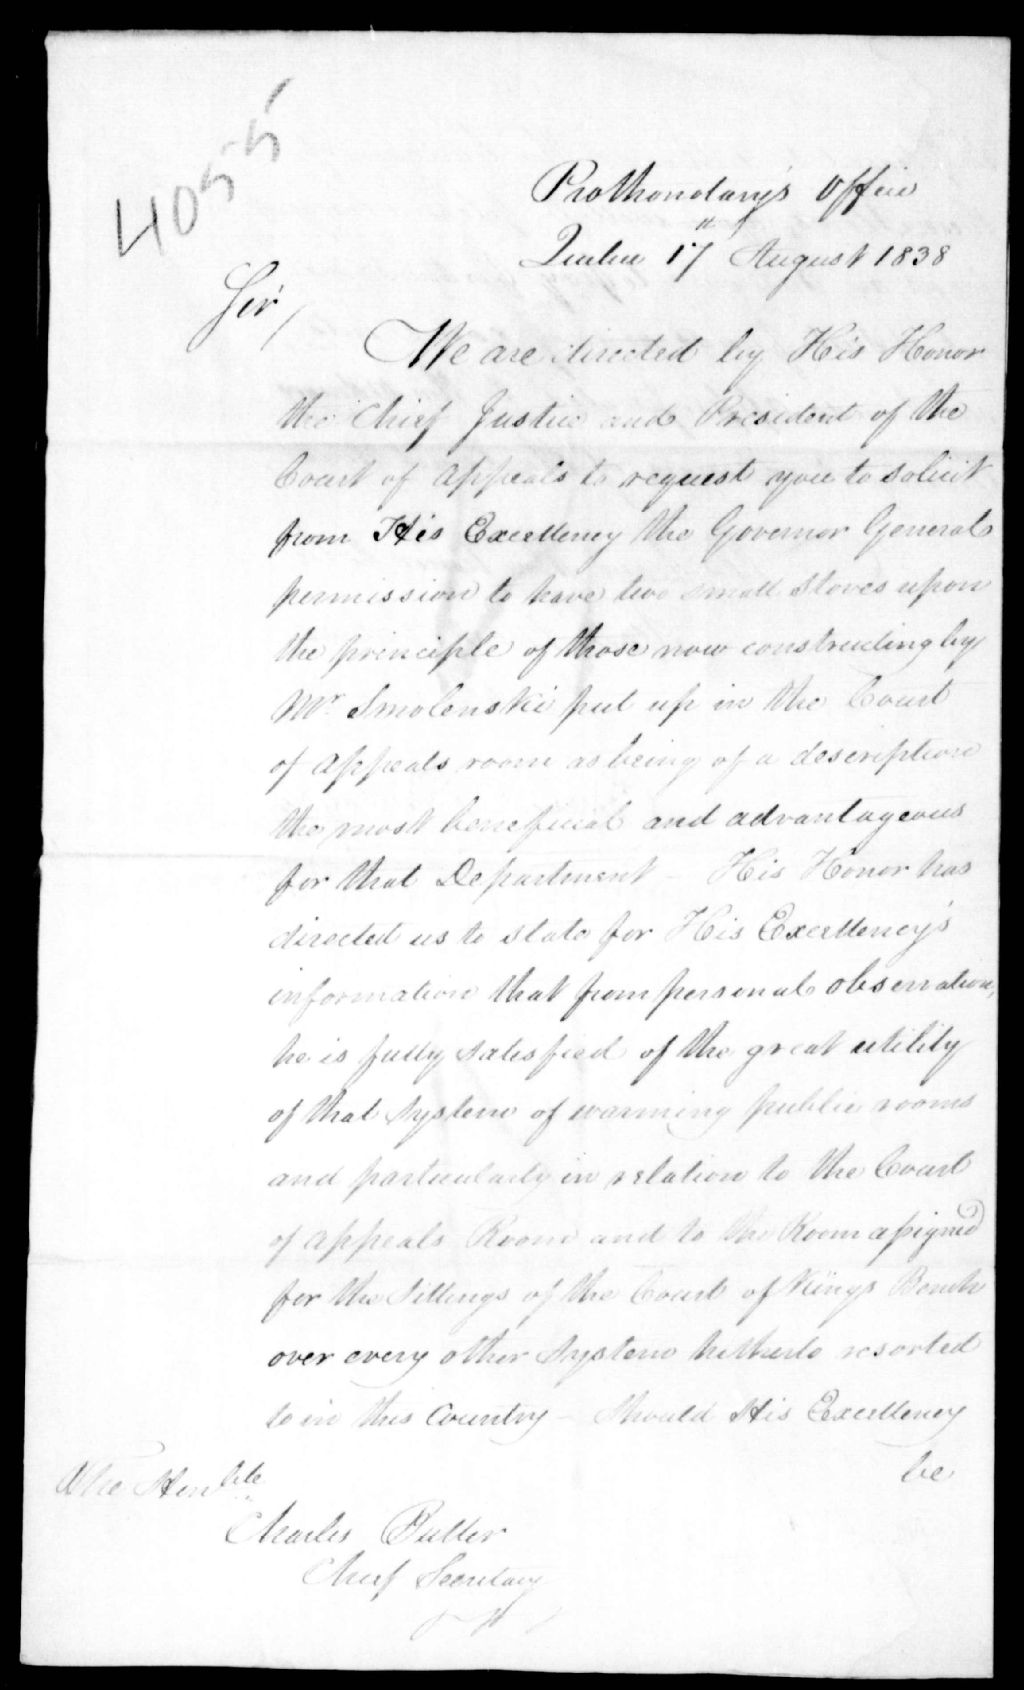 4055
Prothonotary's Office
Quebec 17th August 1838
Sir,
We are directed by His Honor
the Chief Justice and President of the
Court of Appeals to request you to solicit
from His Excellency the Governor General
permission to have two small Stoves upon
the principle of those now constructing by
Mr. Smolenski put up in the Court
of Appeals room as being of a description
the most beneficial and advantageous
for that Department - His Honor has
directed us to state for His Excellency's
information that from personal observation,
he is fully satisfied of the great utility
of that System of warming public rooms
and particularly in relation to the Court
of Appeals Room and to the Room assigned
for the Sittings of the Court of Kings Bench
over every other System hitherto resorted
to in this Country - Should His Excellency
be
The Honble
Charles Buller
Chief Secretary